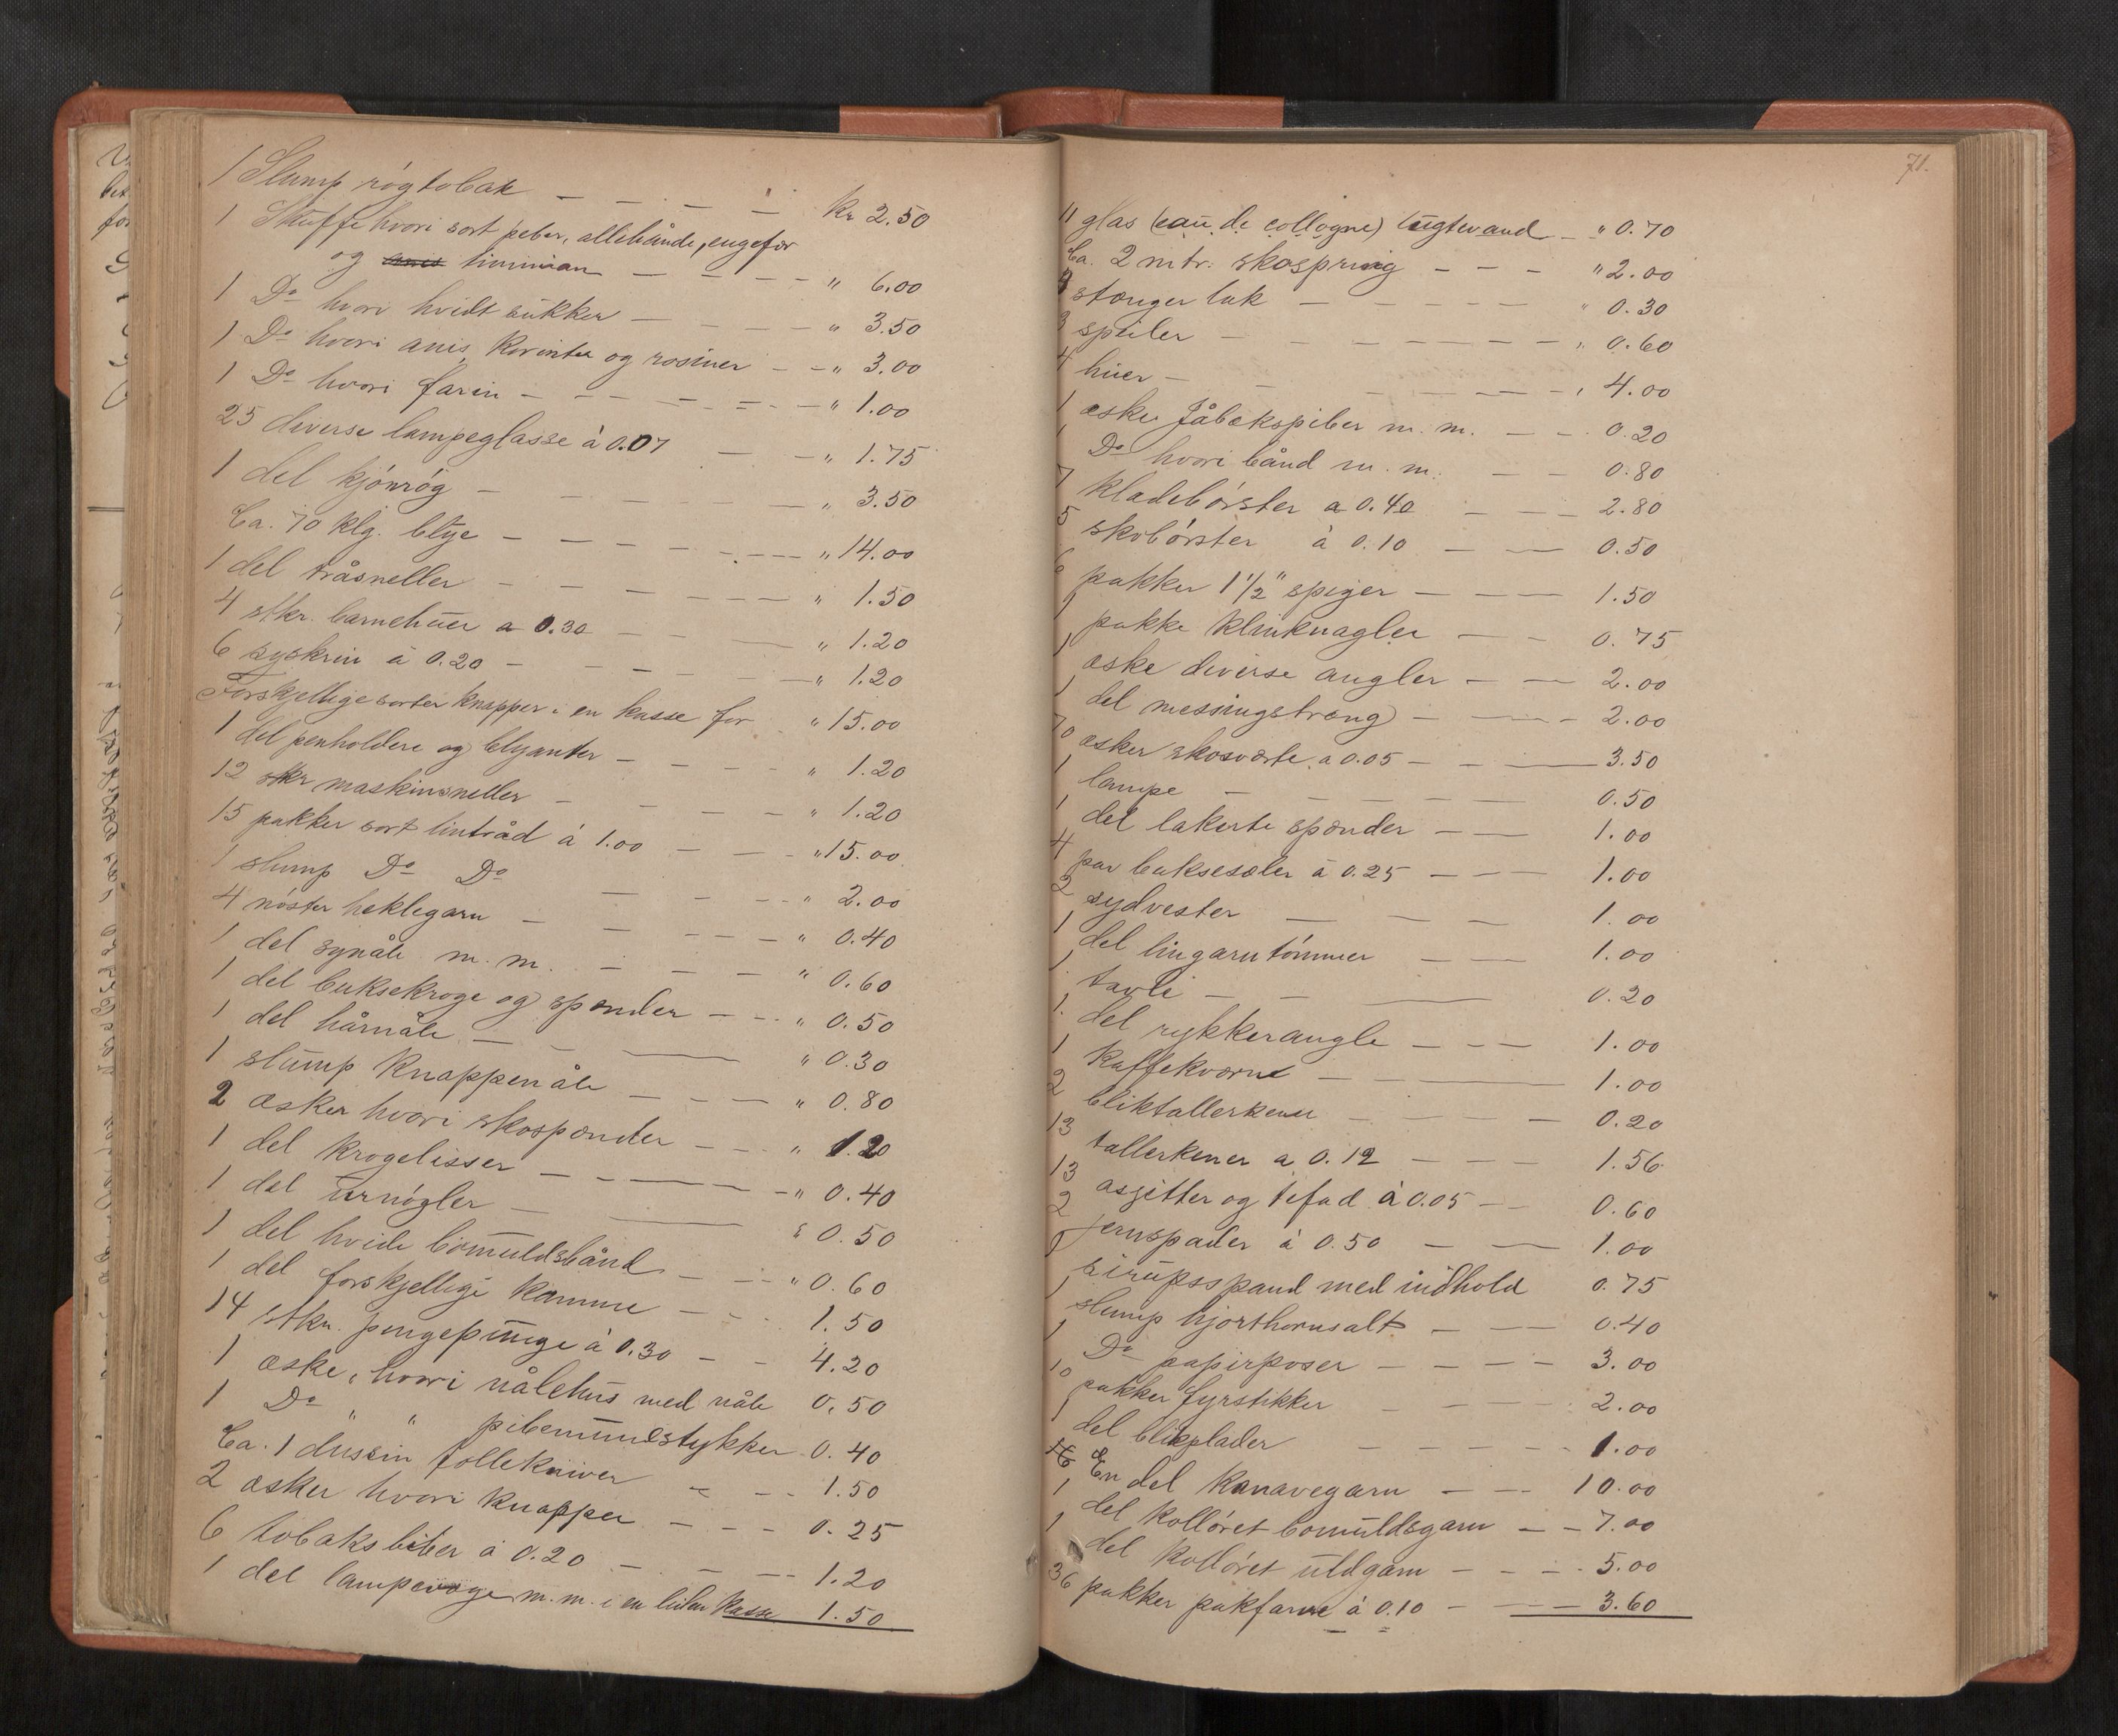 1 Slump røgtobak — — — — kr 2.50
1 Skuffe hvori sort peber, allehånde, engefør
og anis timmian — — — — " 6.00
1 Do hvori hvidt sukker — — — — " 3.50
1 Do hvori anis, Korinter og rosiner — — " 3.00
1 Do hvori farin — — — — — " 1.00
25 diverse lampeglasse à 0.07 — — " 1.75
1 del kjønrøg — — — — — " 3.50
Ca. 70 klg. blye — — — — — " 14.00
1 del tråsneller — — — — — " 1.50
4 stkr. barnehuer a 0.30 — — — " 1.20
6 syskrin à 0.20 — — — — — " 1.20
Forskjellige sorter knapper i en kasse for " 15.00
1 del penholdere og blyanter — — — — " 1.20
12 stkr maskinsneller — — — — " 1.20
15 pakker sort lintråd à 1.00 — — — " 15.00
1 slump Do Do — — — — " 2.00
4 nøster heklegarn — — — — — " 0.40
1 del synåle m. m. — — — — " 0.60
1 del buksekroge og spænder — — — " 0.50
1 del hårnåle — — — " 0.30
1 slump Knappenåle — — — — " 0.80
2 æsker hvori skospænder — — — " 1.20
1 del Krogelisser — — — — — " 0.40
1 del urnøgler — — " 0.50
1 del hvide bomuldsbånd — — — " 0.60
1 del forskjellige Kamme — — 1.50
14 stkr. pengepunge à 0.30 — — 4.20
1 æske, hvori nålehus med nåle 0.50
1 Do " " pibemundstykker 0.40
Ca. 1 dussin follekniver — — — 1.50
2 æsker hvori Knapper — — — 0.25
6 tobaksbiter à 0.20 — — — — 1.20
1 del lampevæge m. m. i en liden Kasse 1.50
71.
11 glas (eau de collogne) lugtevand — " 0.70
Ca. 2 mtr. skospring — — — " 2.00
stænger lak — — — — — " 0.30
3 speiler — — — — — — — " 0.60
4 huer — — — — — " 4.00
1 æske Jåbækspiber m. m. — — 0.20
1 Do hvori bånd m. m. — — 0.80
7 kladebørster a 0.40 — — — 2.80
5 skobørster à 0.10 — — 0.50
6 pakker 1 1/2" spiger — — — 1.50
1 pakke klinknagler — — 0.75
1 æske diverse angler — — 2.00
1 del messingstræng — — — 2.00
70 æsker skosværte a 0.05 — — — 3.50
1 lampe — — — — — 0.50
1 del lakerte spænder — — 1.00
4 par buksesæler à 0.25 — — — 1.00
2 sydvester — — — 1.00
1 del lingarntømmer — — 1.00
1 tavle — — — 0.20
1 del rykkerangle — — — 1.00
1 Kaffekværne — — 1.00
2 bliktallerkener — — — — 0.20
13 tallerkener a 0.12 — — — 1.56
13 asjetter og tefad à 0.05 — — 0.60
2 jernspader à 0.50 — — 1.00
1 sirupsspand med indhold 0.75
1 slump hjorthornsalt — — 0.40
1 Do papirposer — — — — 3.00
10 pakker fyrstikker — — — 2.00
1 del blikplader — — — — — 1.00
En del Kanavegarn — — 10.00
1 del kolløret bomuldsgarn — — 7.00
1 del kolløret uldgarn — — — 5.00
36 pakker pakfarve à 0.10 — — — 3.60